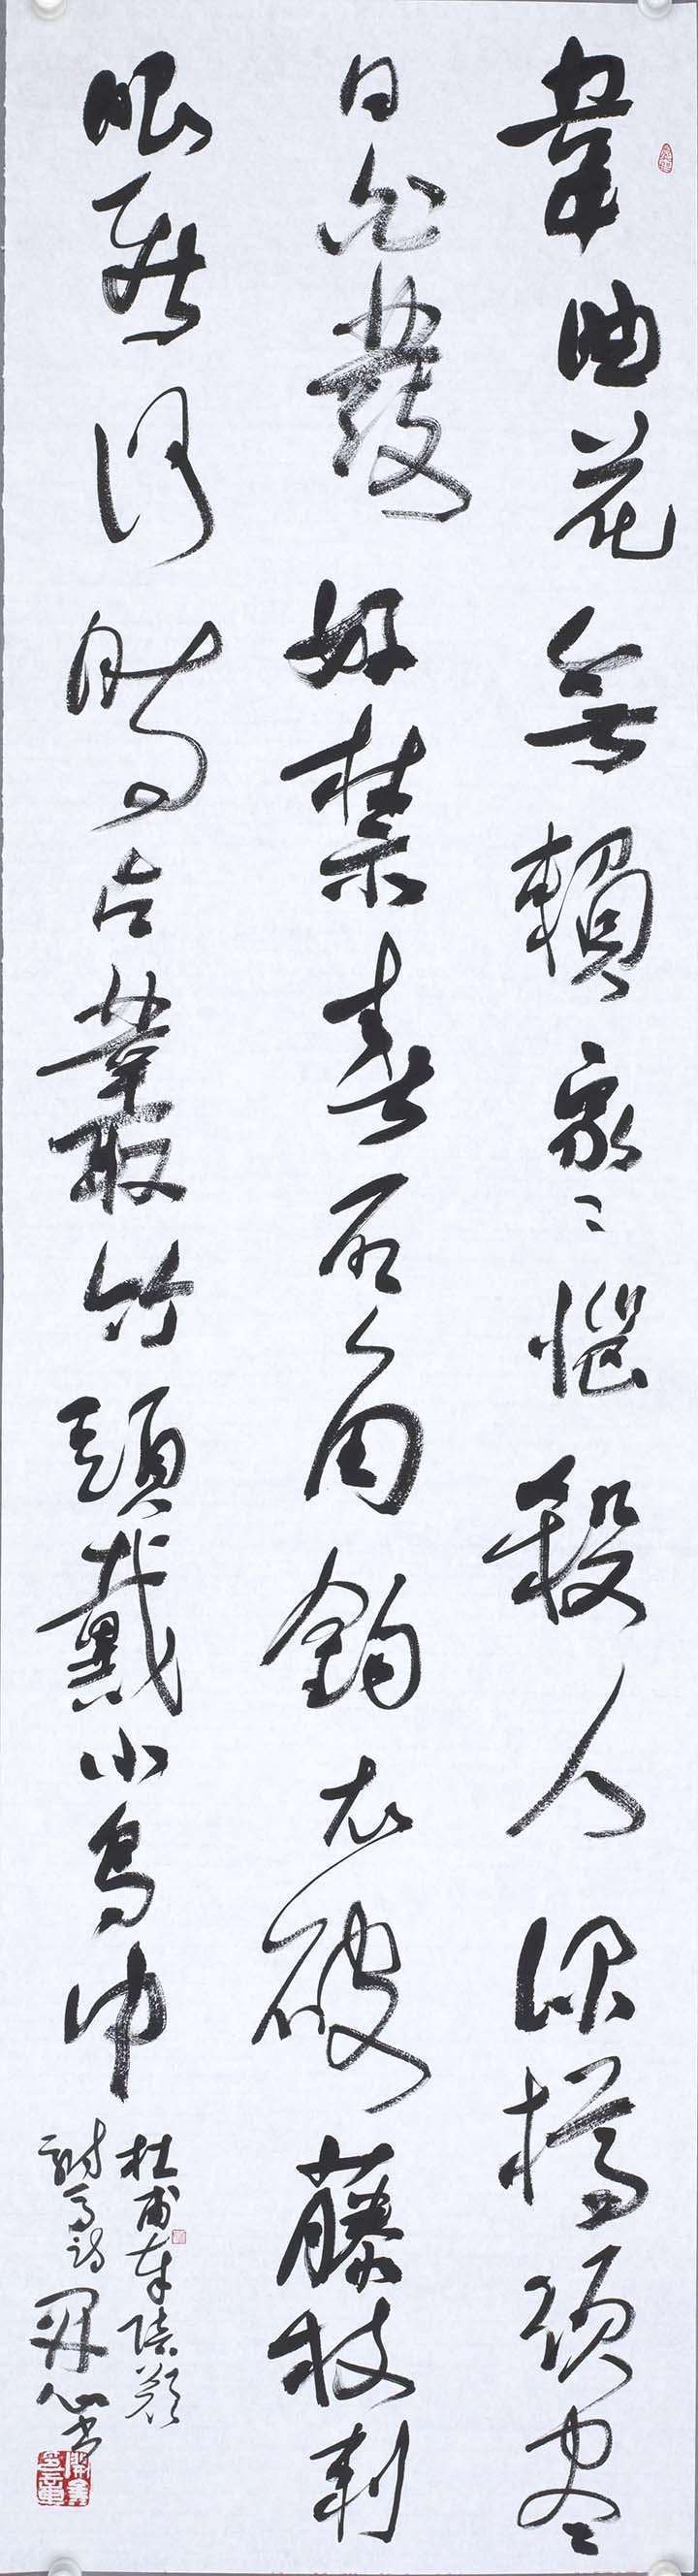 韋曲花無賴家〻惱殺人綠樽須盡
日白髮好禁春石角鈎衣破藤枝刺
眼新何時占叢竹頭戴小烏巾
杜甫奉陪鄭
駙馬詩